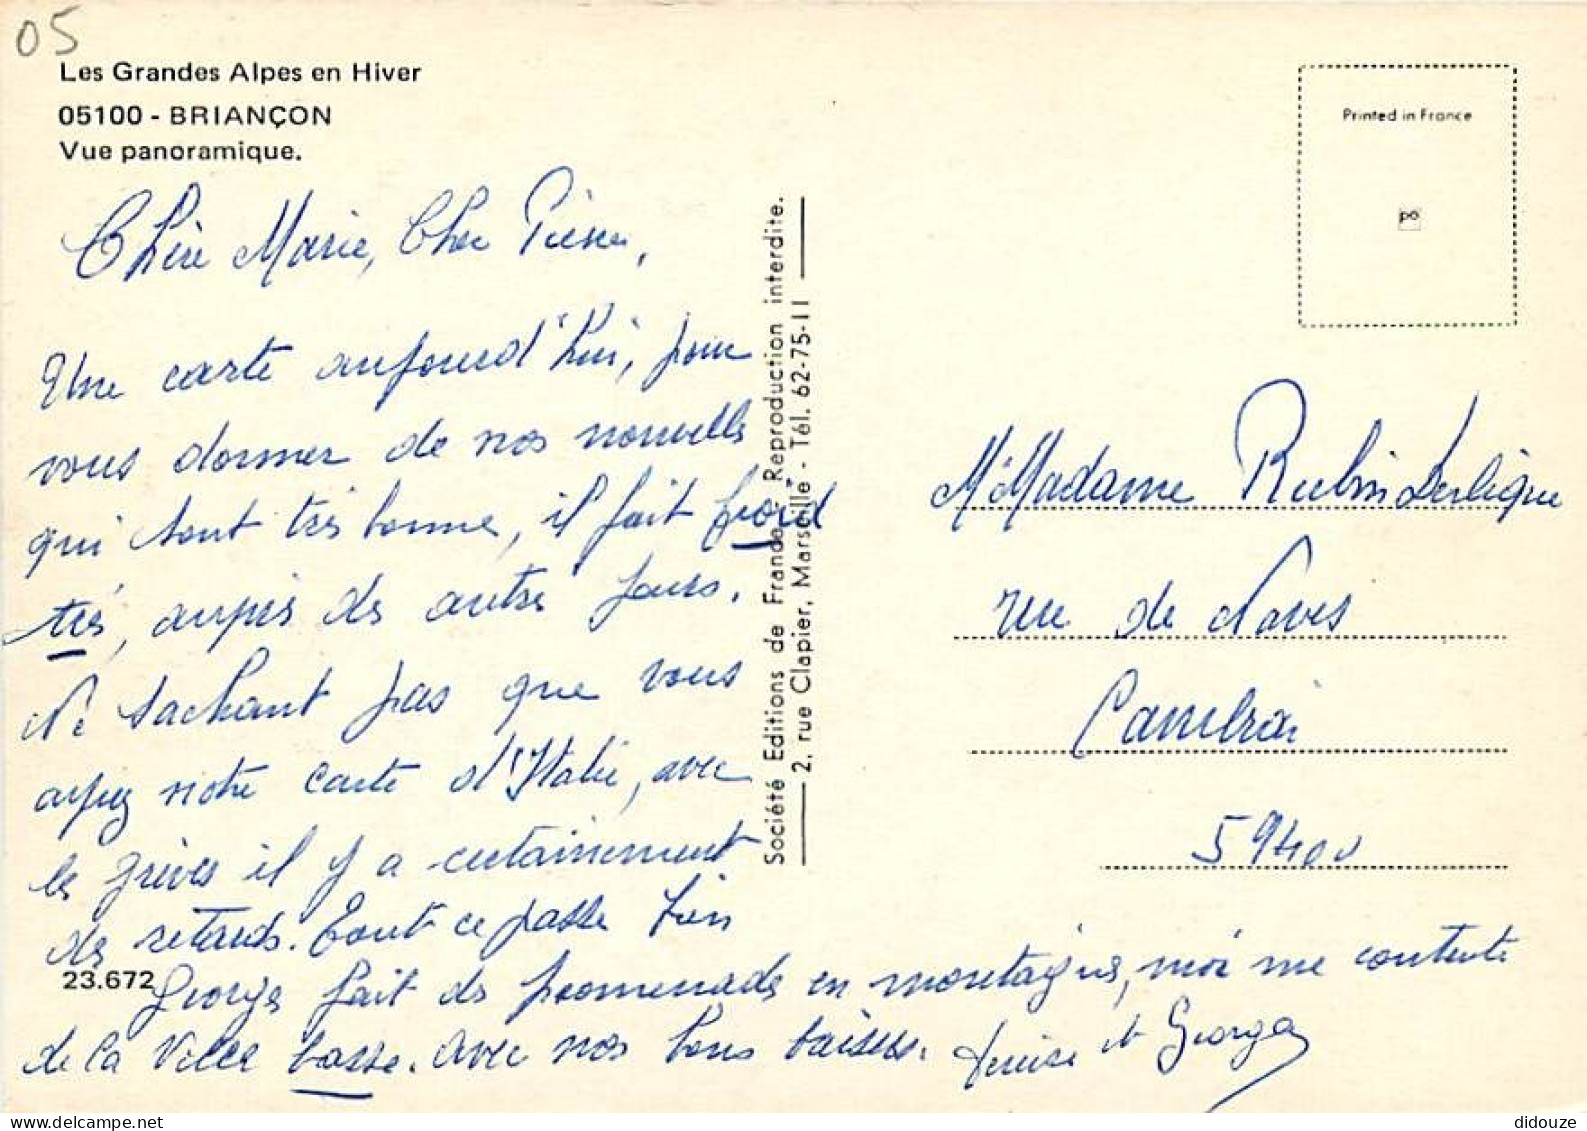 05
Les Grandes Alpes en Hiver
05100 - BRIANÇON
Vue panoramique.
Chère Marie, Cher Pierre,
Une carte aujourd'hui, pour
vous donner de nos nouvelles
qui sont très bonne, il fait froid
très, aupès des autres jours.
Ne sachant pas que vous
ayez notre carte d'Italie, avec
les grèves il y a certainement
des retards. Tout ce passe bien
Georges fait des promenades en montagnes, moi me contente
de la Ville basse. avec nos bons baisers. Denise et Georges
23.672
Société Editions de France - Reproduction interdite.
2, rue Clapier, Marseille - Tél. 62-75-11
Printed in France
po
M. Madame Rubin Derligue
rue de Naves
Cambrai
59400
didouze